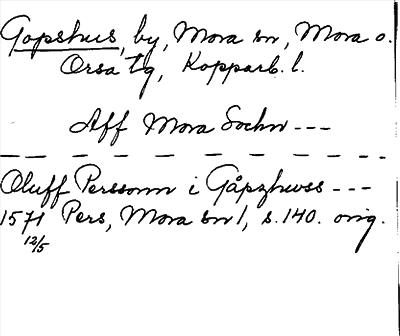 Gopshus, by, Mora sn, Mora o.
Orsa tg, Kopparb. l.
Aff Mora Sochn ---
— — — — — — — - - -
Oluff Perssonn i Gåpzhuss ---
1571 Pers, Mora sn 1, s. 140. orig.
12/5